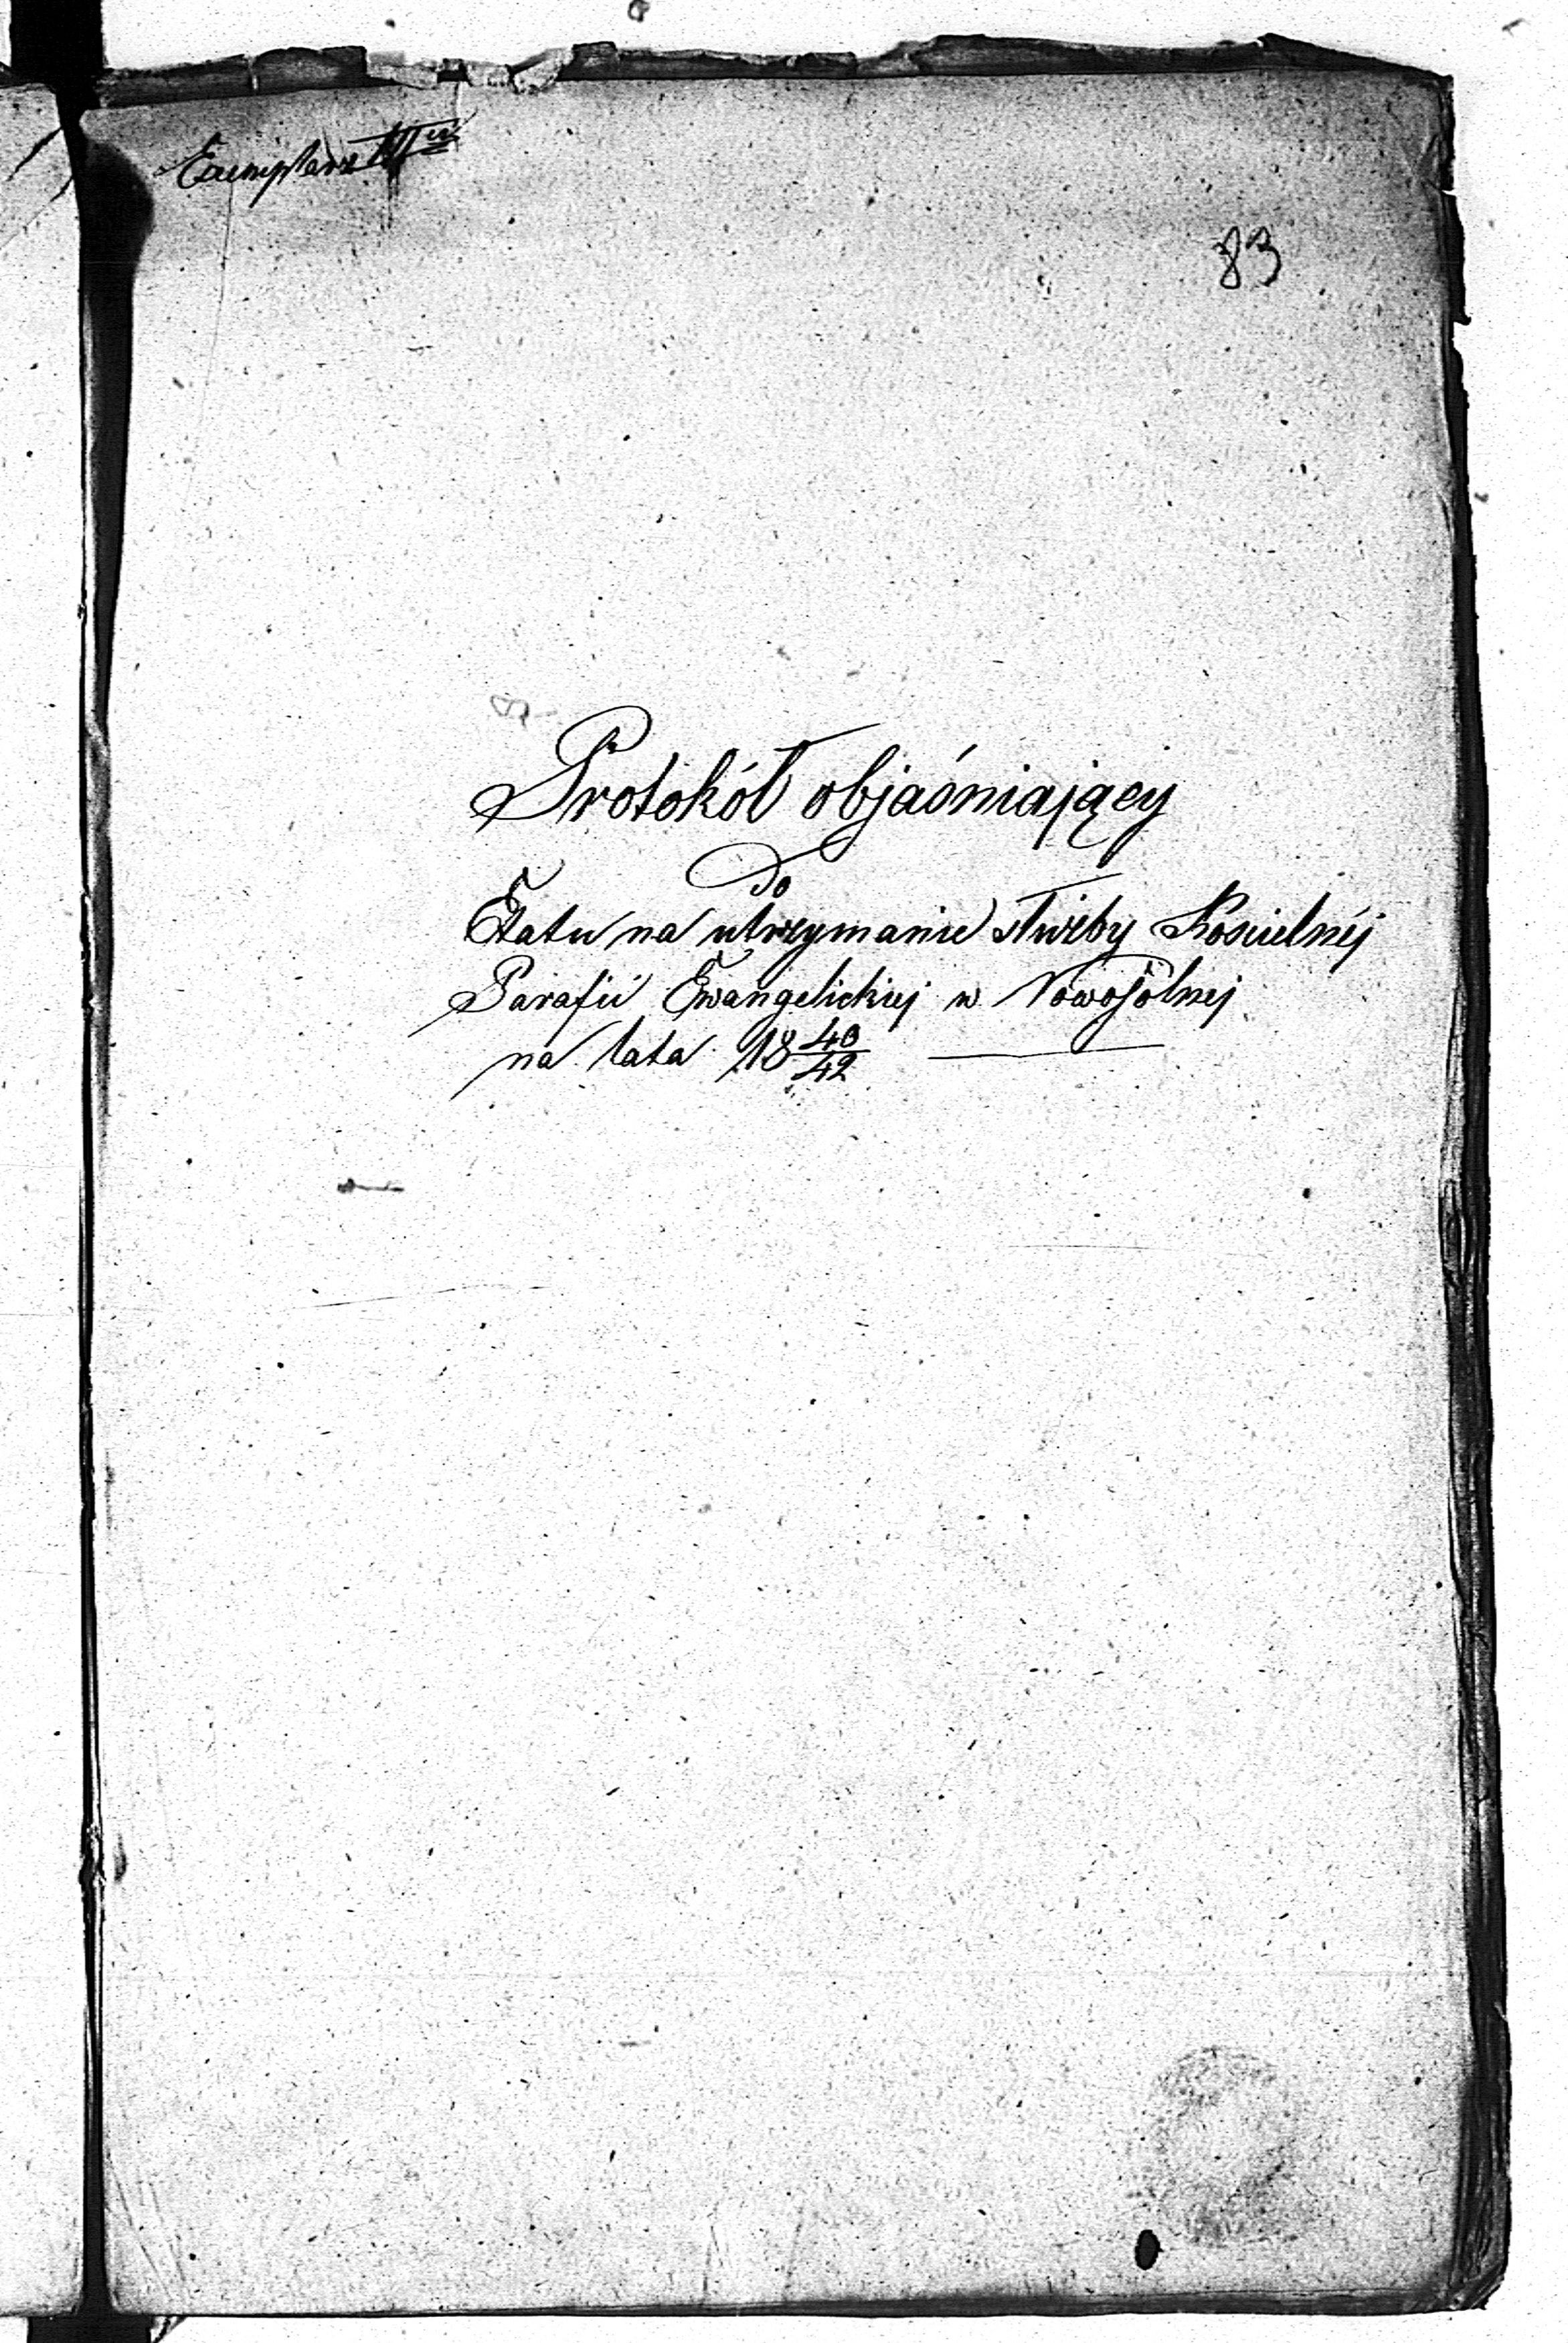 Exemplarz III<sup>ci</sup>
83
Protokół objaśniający
do
Etatu na utrzymanie służby Kościelnéj
Parafii Ewangelickiej w Nowosolnej
na lata 18 40/42